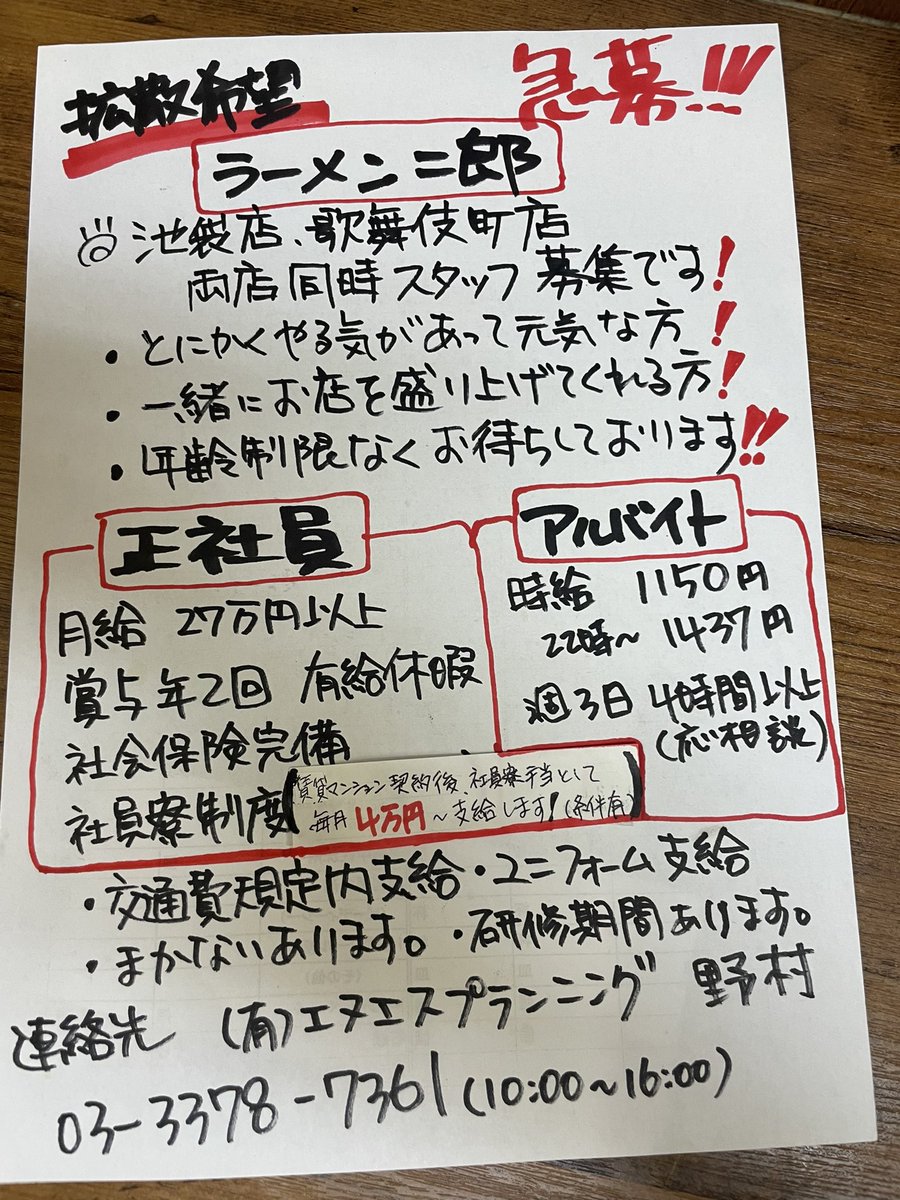 拡散希望
急募!!!
ラーメン二郎
池袋店、歌舞伎町店
両店同時スタッフ募集です!
・とにかくやる気があって元気な方!
・一緒にお店を盛り上げてくれる方!
・年齢制限なくお待ちしております!!
正社員
月給 27万円以上
賞与年2回 有給休暇
社会保険完備
社員寮制度
賃貸マンション契約後、社員寮手当として
毎月4万円~支給します!(条件有)
アルバイト
時給 1150円
22時~ 1437円
週3日 4時間以上
(応相談)
・交通費規定内支給・ユニフォーム支給
・まかないあります。・研修期間あります。
連絡先 (有)エヌエスプランニング 野村
03-3378-7361(10:00~16:00)